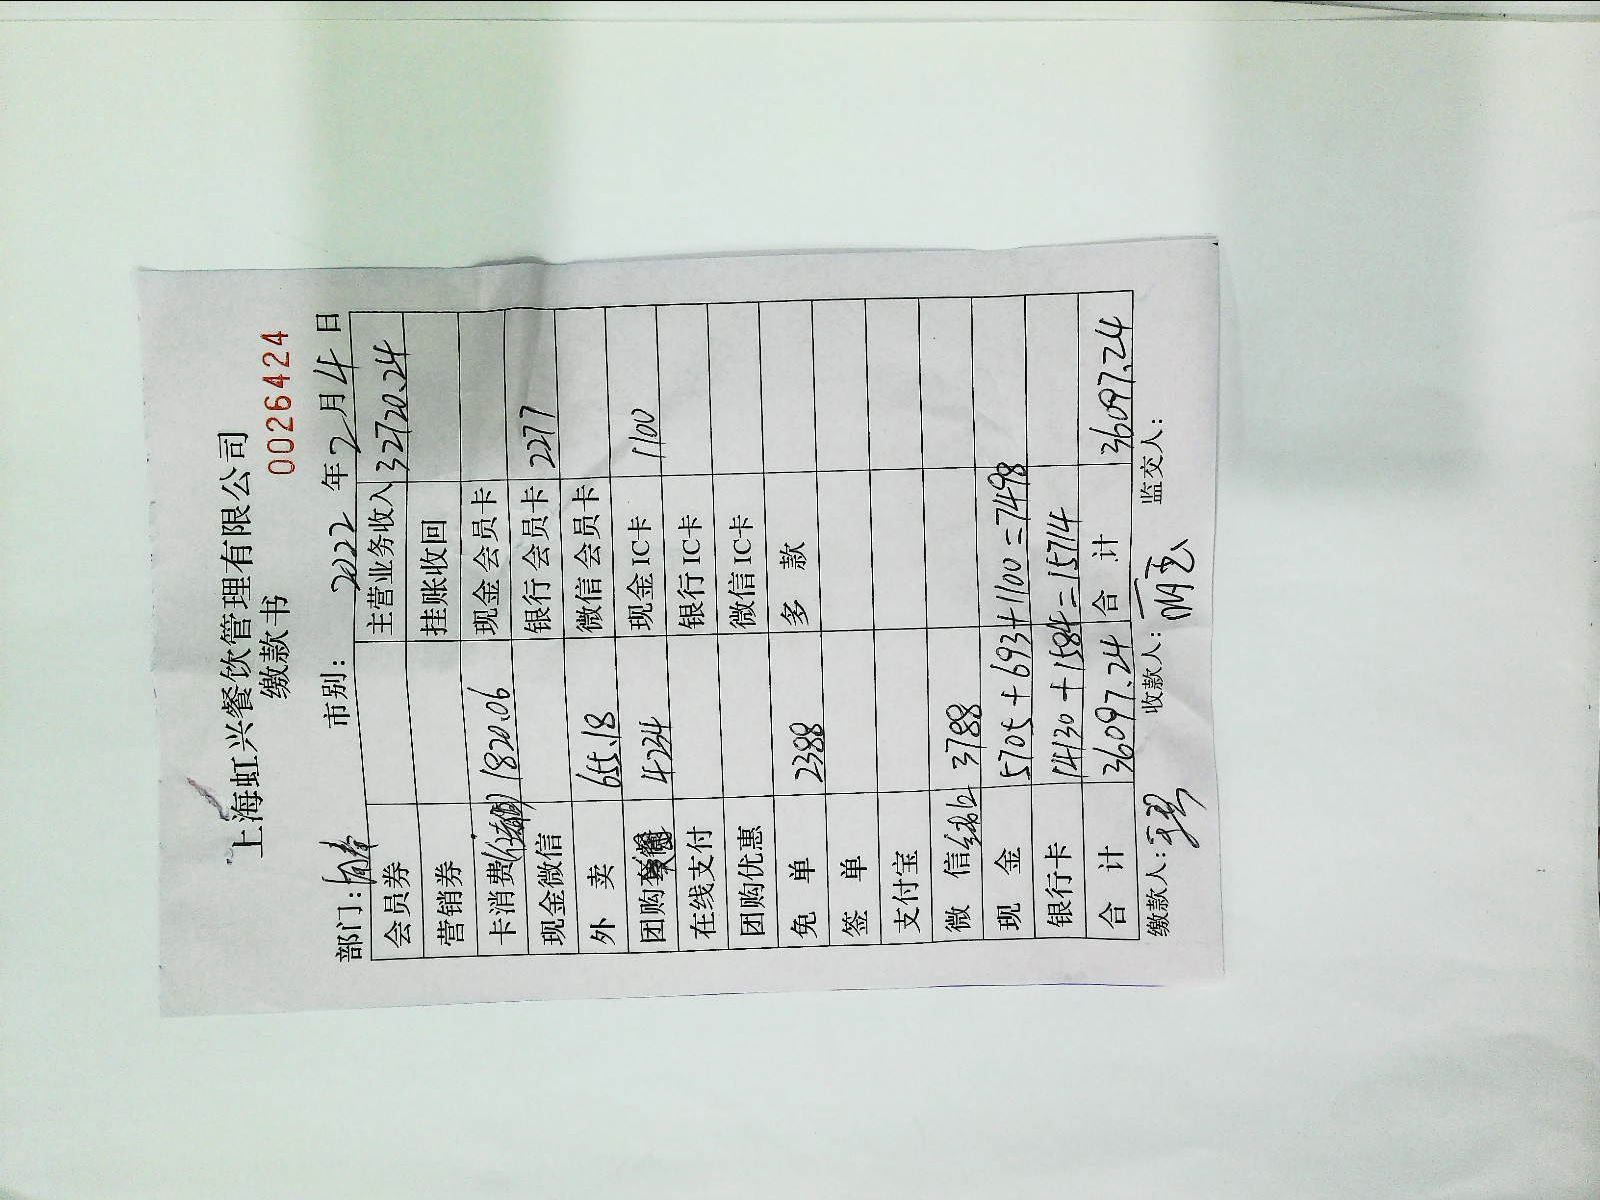 上海虹兴餐饮管理有限公司
缴款书
0026424
部门： 市别： 2022年2月4日
会员券 主营业务收入 32720.24
营销券 挂账收回
卡消费 1820.06 现金会员卡
现金微信 银行会员卡 2277
外 卖 655.18 微信会员卡
团购 4234 现金IC卡 1100
在线支付 银行IC卡
团购优惠 微信IC卡
免 单 2388 多 款
签 单
支付宝
微 信 3788
现 金 5705+693+1100=7498
银行卡 14130+1584=15714
合 计 36097.24 合 计 36097.24
缴款人： 收款人： 监交人：